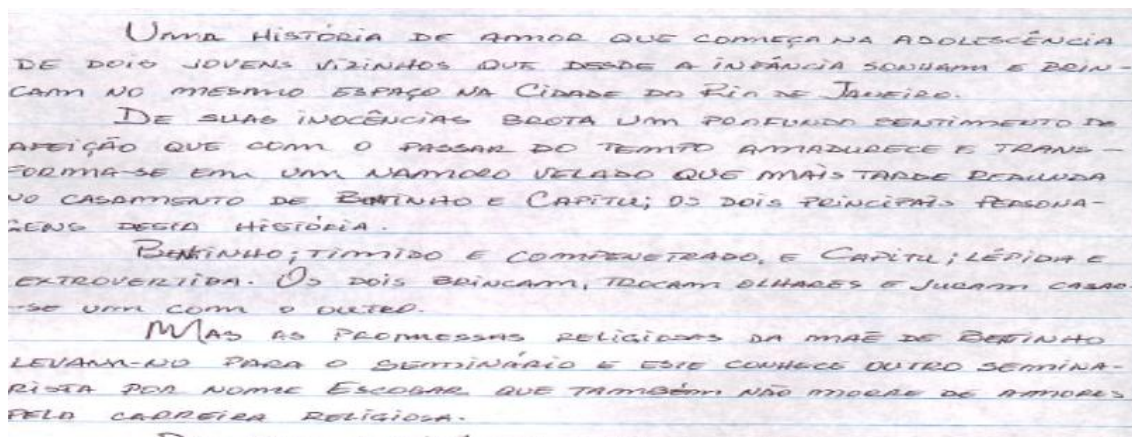 Uma história de amor que começa na adolescência
de dois jovens vizinhos que desde a infância sonham e brin-
cam no mesmo espaço na Cidade do Rio de Janeiro.
De suas inocências brota um profundo sentimento de
afeição que com o passar do tempo amadurece e trans-
forma-se em um namoro velado que mais tarde redunda
no casamento de Bentinho e Capitu; os dois principais persona-
gens desta história.
Bentinho; tímido e compenetrado, e Capitu; lépida e
extrovertida. Os dois brincam, trocam olhares e juram casar
-se um com o outro.
Mas as promessas religiosas da mãe de Betinho
levam-no para o seminário e este conhece outro semina-
rista por nome Escobar que também não morre de amores
pela carreira religiosa.